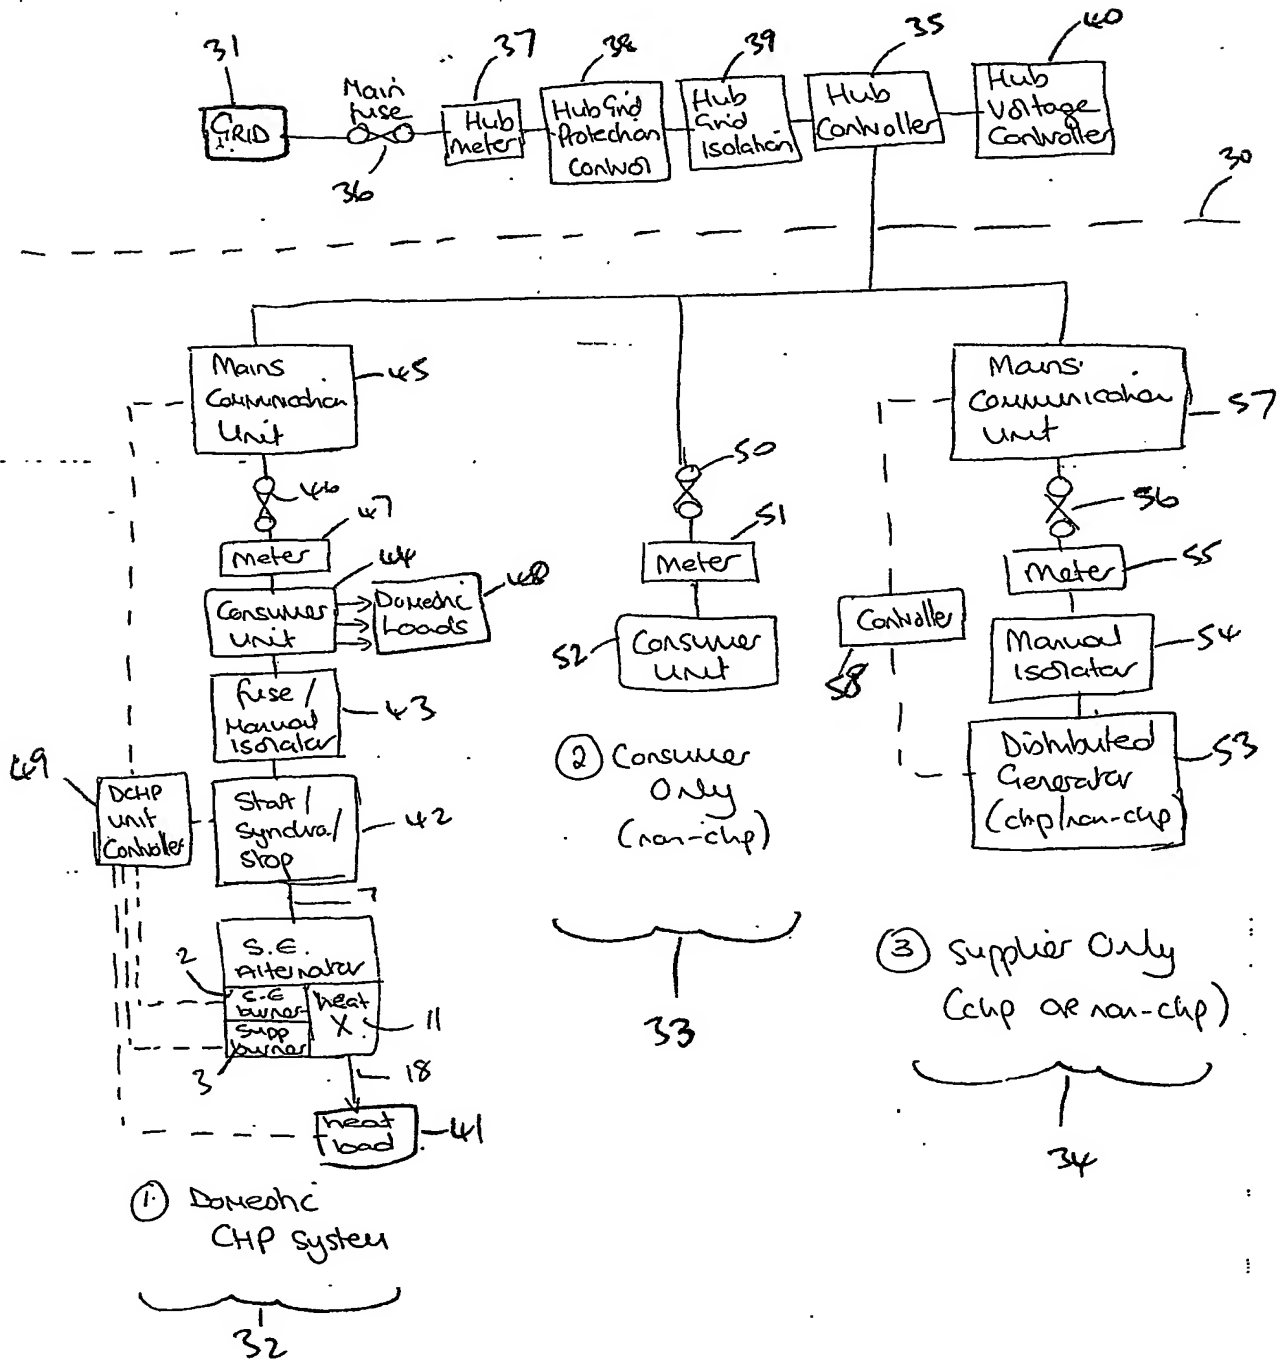 31
37
38
39
35
40
GRID
Main
fuse
36
Hub
meter
Hub Grid
Protection
Control
Hub
Grid
Isolation
Hub
Controller
Hub
Voltage
Controller
30
Mains
Communication
Unit
45
46
47
meter
44
Consumer
Unit
Domestic
Loads
48
fuse/
Manual
Isolator
43
49
DCHP
unit
Controller
Start/
Synchro/
Stop
42
7
S.E.
Alternator
2
S.E
burner
heat
X
11
Supp
burner
3
18
heat
load
41
① Domestic
CHP system
32
50
51
Meter
52
Consumer
Unit
② Consumer
Only
(non-chp)
33
Mains
Communication
Unit
57
56
Meter
55
Controller
58
Manual
Isolator
54
Distributed
Generator
(chp/non-chp)
53
③ Supplier Only
(chp OR non-chp)
34